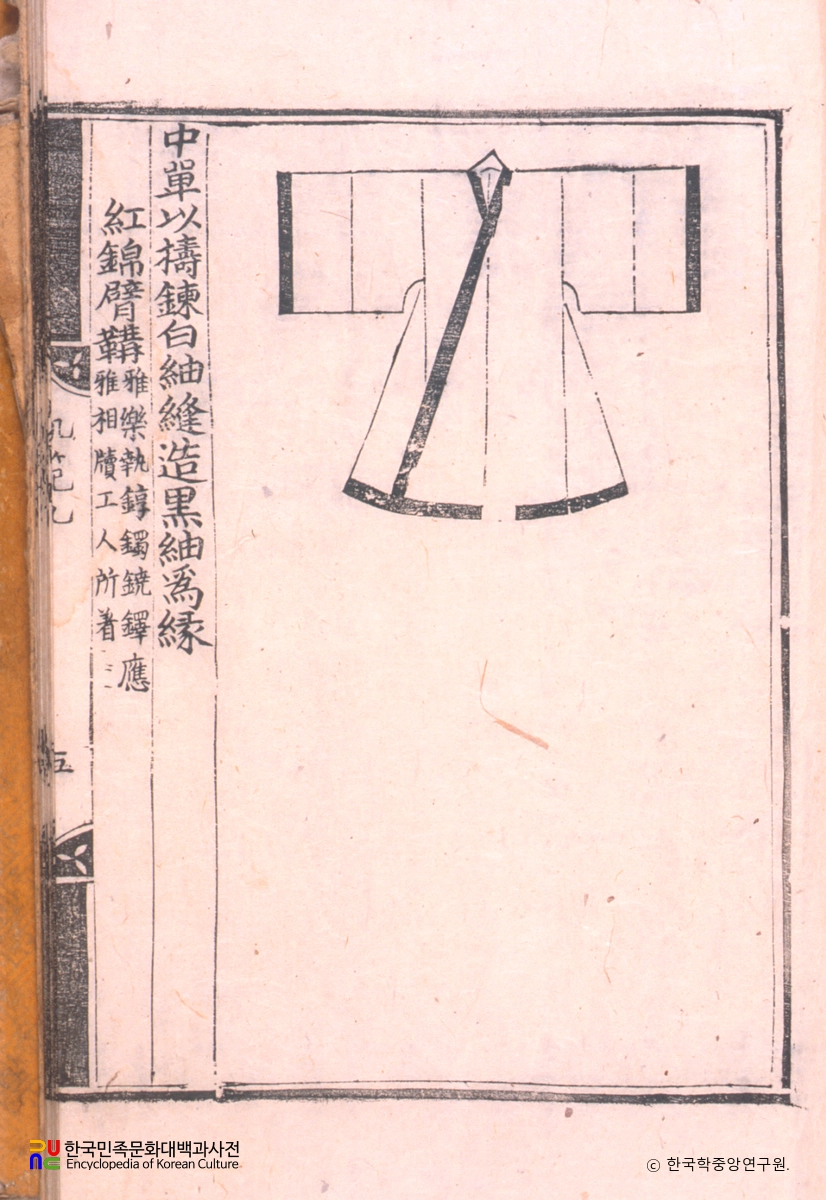 中單以擣鍊白紬縫造黑紬爲緣
紅錦臂鞲
雅樂執錞鐲鐃鐸應
雅相牘工人所著
五
한국민족문화대백과사전
Encyclopedia of Korean Culture
ⓒ 한국학중앙연구원.